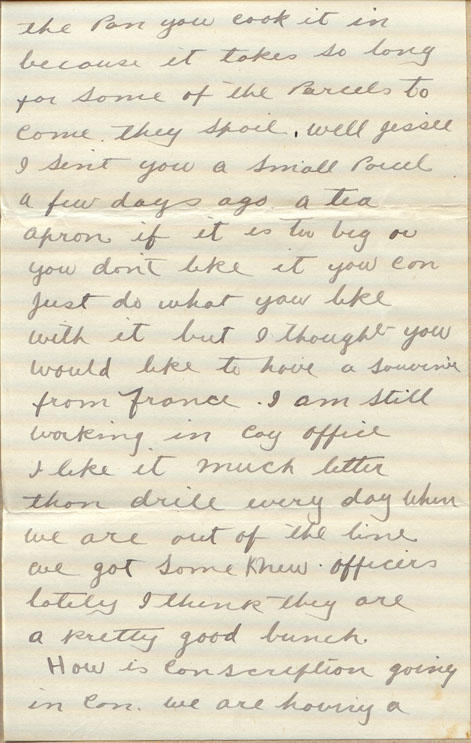 the Pan you cook it in
because it takes so long
for some of the Parcels to
Come. they spoil. well Jessie
I sent you a small Parcel
a few days ago a tea
apron if it is too big or
you don't like it you can
just do what you like
with it but I thought you
would like to have a souvenir
from France. I am still
working in Coy office
I like it much better
than drill every day when
we are out of the line
we got some Knew officers
lately I think they are
a pretty good bunch.
How is Conscription going
in Can. we are having a